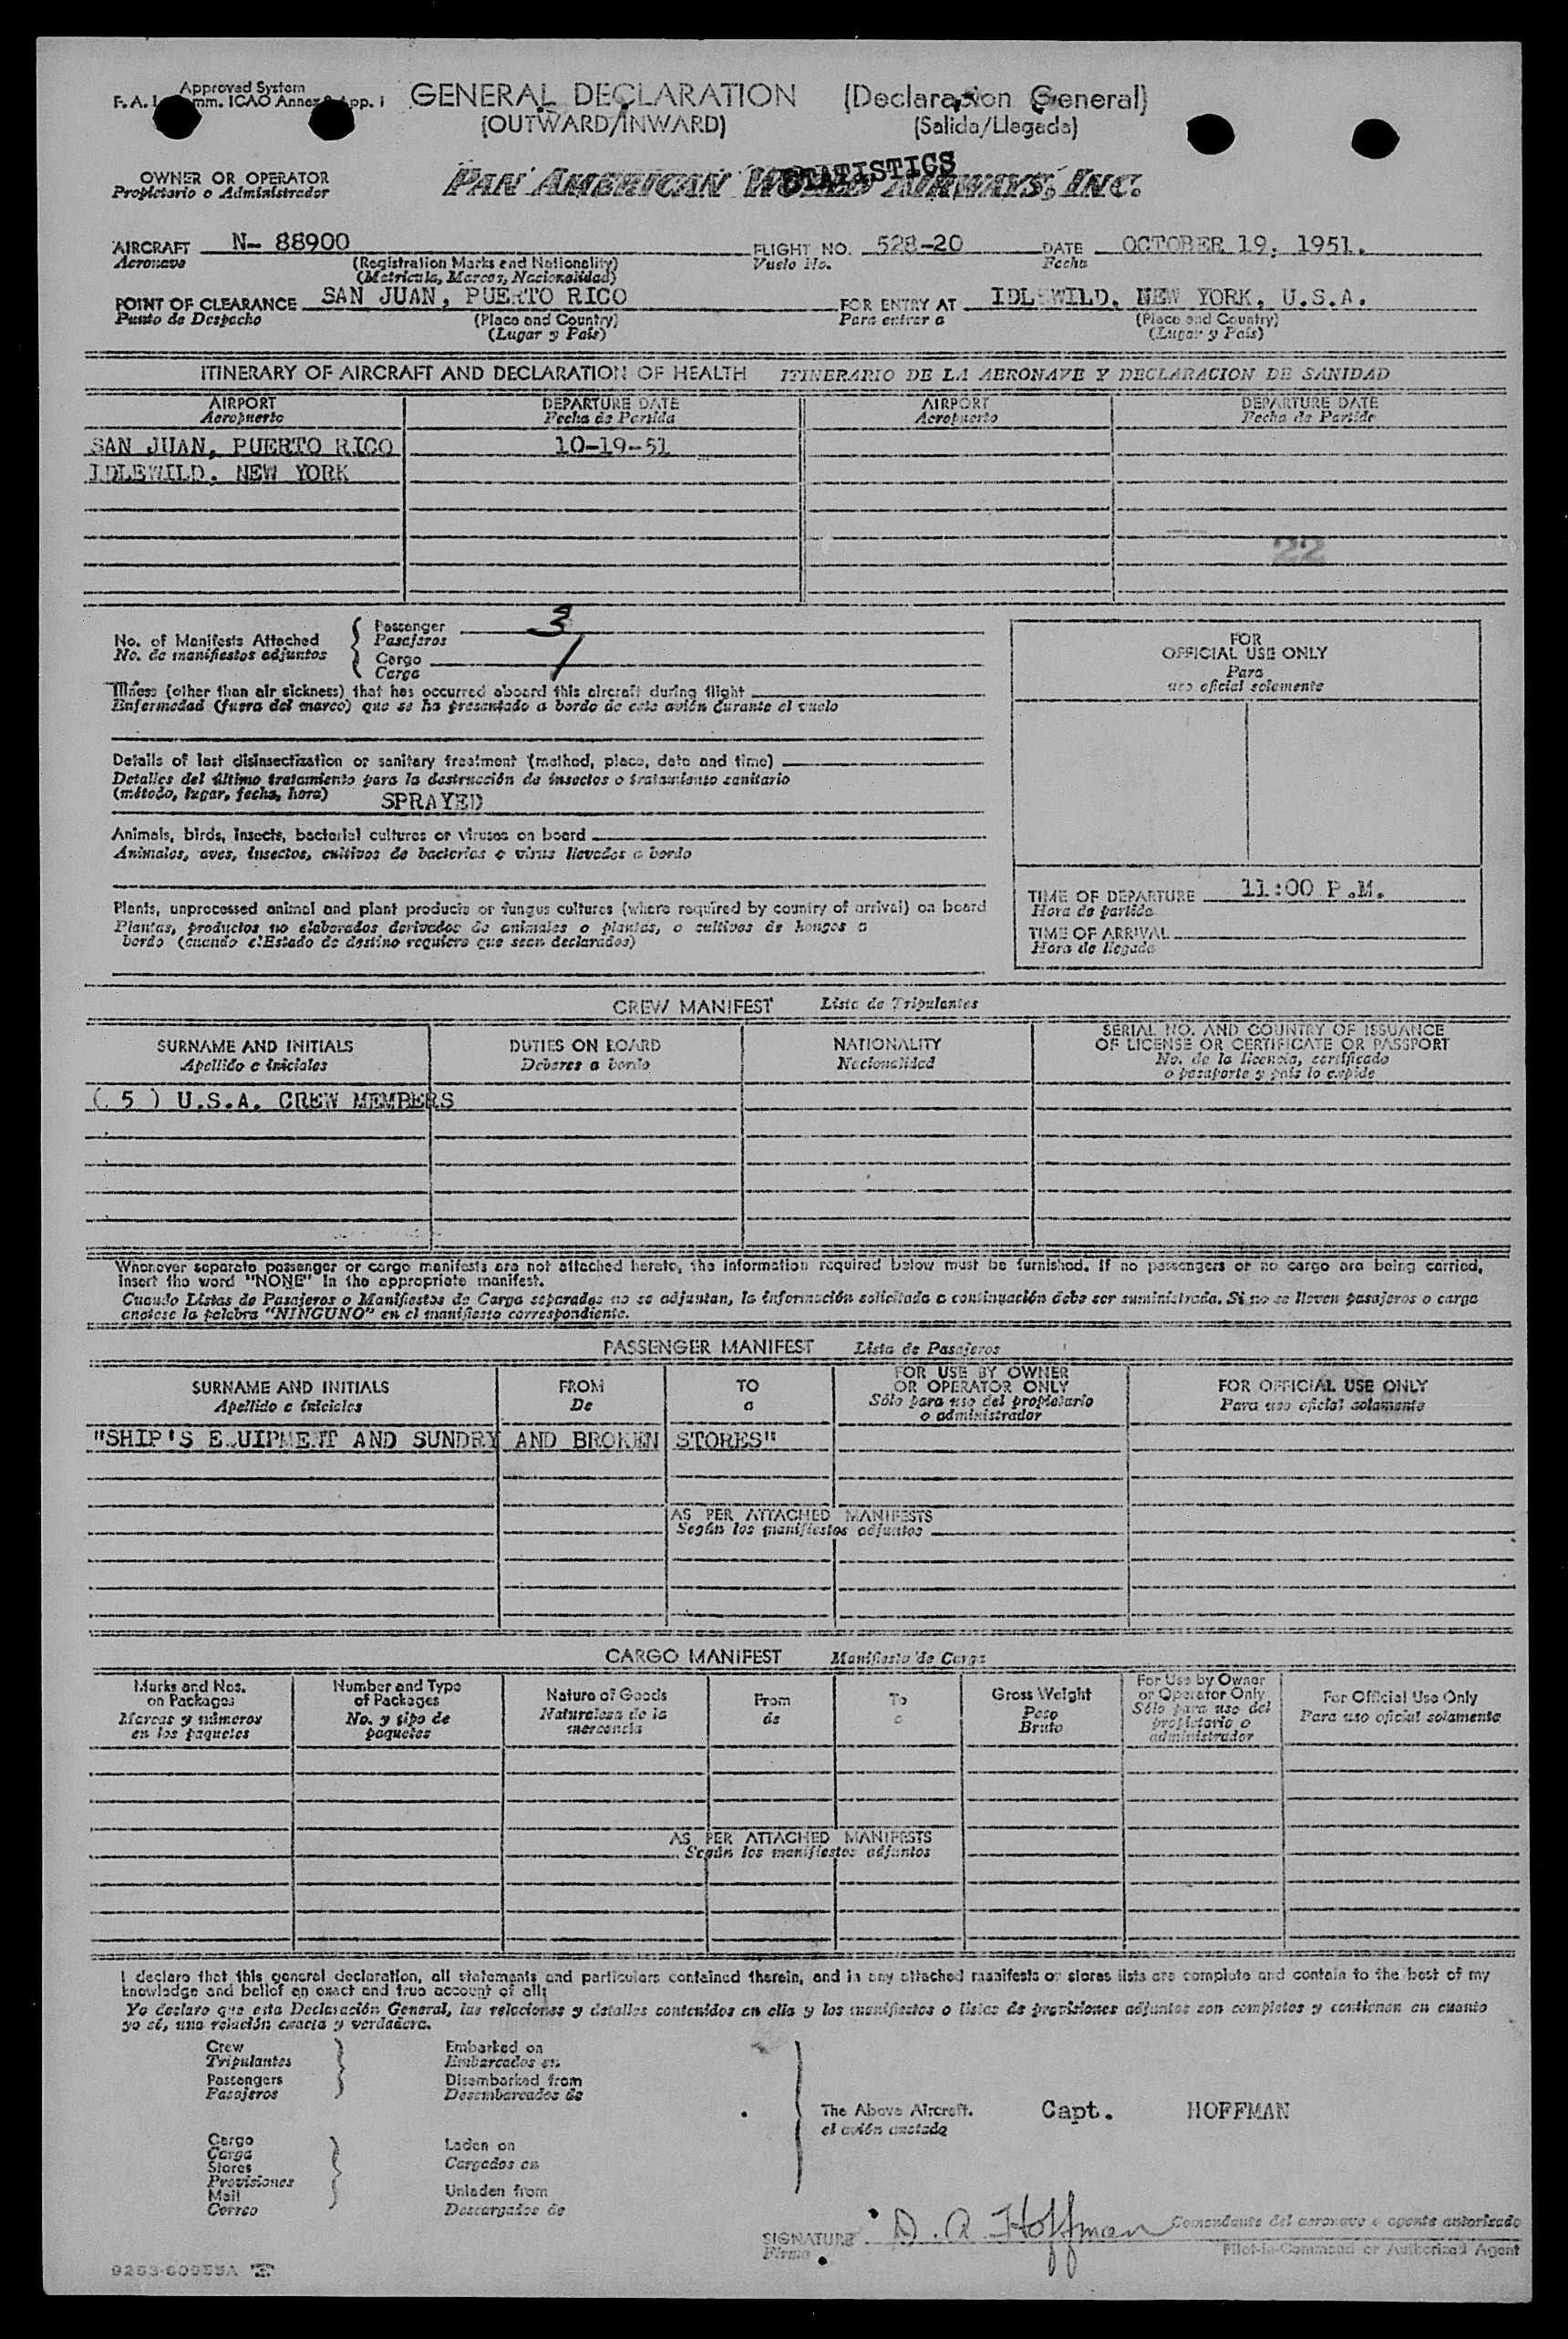 Approved System
GENERAL DECLARATION (Declaracion General)
(OUTWARD/INWARD) (Salida/Llegada)
STATISTICS
OWNER OR OPERATOR
Propietario o Administrador
PAN AMERICAN WORLD AIRWAYS, INC.
AIRCRAFT N- 88900 FLIGHT NO. 528-20 DATE OCTOBER 19, 1951.
Aeronave (Registration Marks and Nationality) Vuelo No. Fecha
(Matricula, Marcas, Nacionalidad)
POINT OF CLEARANCE SAN JUAN, PUERTO RICO FOR ENTRY AT IDLEWILD, NEW YORK, U.S.A.
Punto de Despacho (Place and Country) Para entrar a (Place and Country)
(Lugar y País) (Lugar y País)
ITINERARY OF AIRCRAFT AND DECLARATION OF HEALTH ITINERARIO DE LA AERONAVE Y DECLARACION DE SANIDAD
AIRPORT DEPARTURE DATE AIRPORT DEPARTURE DATE
Aeropuerto Fecha de Partida Aeropuerto Fecha de Partida
SAN JUAN, PUERTO RICO 10-19-51
IDLEWILD, NEW YORK
22
No. of Manifests Attached
No. de manifiestos adjuntos
Passenger 3
Pasajeros
Cargo 1
Carga
Illness (other than air sickness) that has occurred aboard this aircraft during flight
Enfermedad (fuera del mareo) que se ha presentado a bordo de este avión durante el vuelo
Details of last disinsectization or sanitary treatment (method, place, date and time)
Detalles del último tratamiento para la destrucción de insectos o tratamiento sanitario
(método, lugar, fecha, hora) SPRAYED
Animals, birds, insects, bacterial cultures or viruses on board
Animales, aves, insectos, cultivos de bacterias o virus llevados a bordo
Plants, unprocessed animal and plant products or fungus cultures (where required by country of arrival) on board
Plantas, productos no elaborados derivados de animales o plantas, o cultivos de hongos a
bordo (cuando el Estado de destino requiere que sean declarados)
FOR
OFFICIAL USE ONLY
Para
uso oficial solamente
TIME OF DEPARTURE 11:00 P.M.
Hora de partida
TIME OF ARRIVAL
Hora de llegada
CREW MANIFEST Lista de Tripulantes
SURNAME AND INITIALS DUTIES ON BOARD NATIONALITY SERIAL NO. AND COUNTRY OF ISSUANCE
OF LICENSE OR CERTIFICATE OR PASSPORT
Apellido e iniciales Deberes a bordo Nacionalidad No. de la licencia, certificado
o pasaporte y país lo expide
( 5 ) U.S.A. CREW MEMBERS
Whenever separate passenger or cargo manifests are not attached hereto, the information required below must be furnished. If no passengers or no cargo are being carried,
insert the word "NONE" in the appropriate manifest.
Cuando Listas de Pasajeros o Manifiestos de Carga separados no se adjuntan, la información solicitada a continuación debe ser suministrada. Si no se lleven pasajeros o carga
anotese la palabra "NINGUNO" en el manifiesto correspondiente.
PASSENGER MANIFEST Lista de Pasajeros
SURNAME AND INITIALS FROM TO FOR USE BY OWNER
OR OPERATOR ONLY FOR OFFICIAL USE ONLY
Apellido e iniciales De a Sólo para uso del propietario
o administrador Para uso oficial solamente
"SHIP'S E UIPMENT AND SUNDRY AND BROKEN STORES"
AS PER ATTACHED MANIFESTS
Según los manifiestos adjuntos
CARGO MANIFEST Manifiesto de Carga
Marks and Nos.
on Packages
Marcas y números
en los paquetes
Number and Type
of Packages
No. y tipo de
paquetes
Nature of Goods
Naturaleza de la
mercancía
From
de
To
a
Gross Weight
Peso
Bruto
For Use by Owner
or Operator Only
Sólo para uso del
propietario o
administrador
For Official Use Only
Para uso oficial solamente
AS PER ATTACHED MANIFESTS
Según los manifiestos adjuntos
I declare that this general declaration, all statements and particulars contained therein, and in any attached manifests or stores lists are complete and contain to the best of my
knowledge and belief an exact and true account of all:
Yo declaro que esta Declaración General, las relaciones y detalles contenidos en ella y los manifiestos o listas de provisiones adjuntos son completos y contienen en cuanto
yo sé, una relación exacta y verdadera.
Crew
Tripulantes
Passengers
Pasajeros
Embarked on
Embarcados en
Disembarked from
Desembarcados de
Cargo
Carga
Stores
Provisiones
Mail
Correo
Laden on
Cargados en
Unladen from
Descargados de
The Above Aircraft. Capt. HOFFMAN
el avión anotado
SIGNATURE D. A. Hoffman
Firma
Comandante del aeronave o agente autorizado
Pilot-in-Command or Authorized Agent